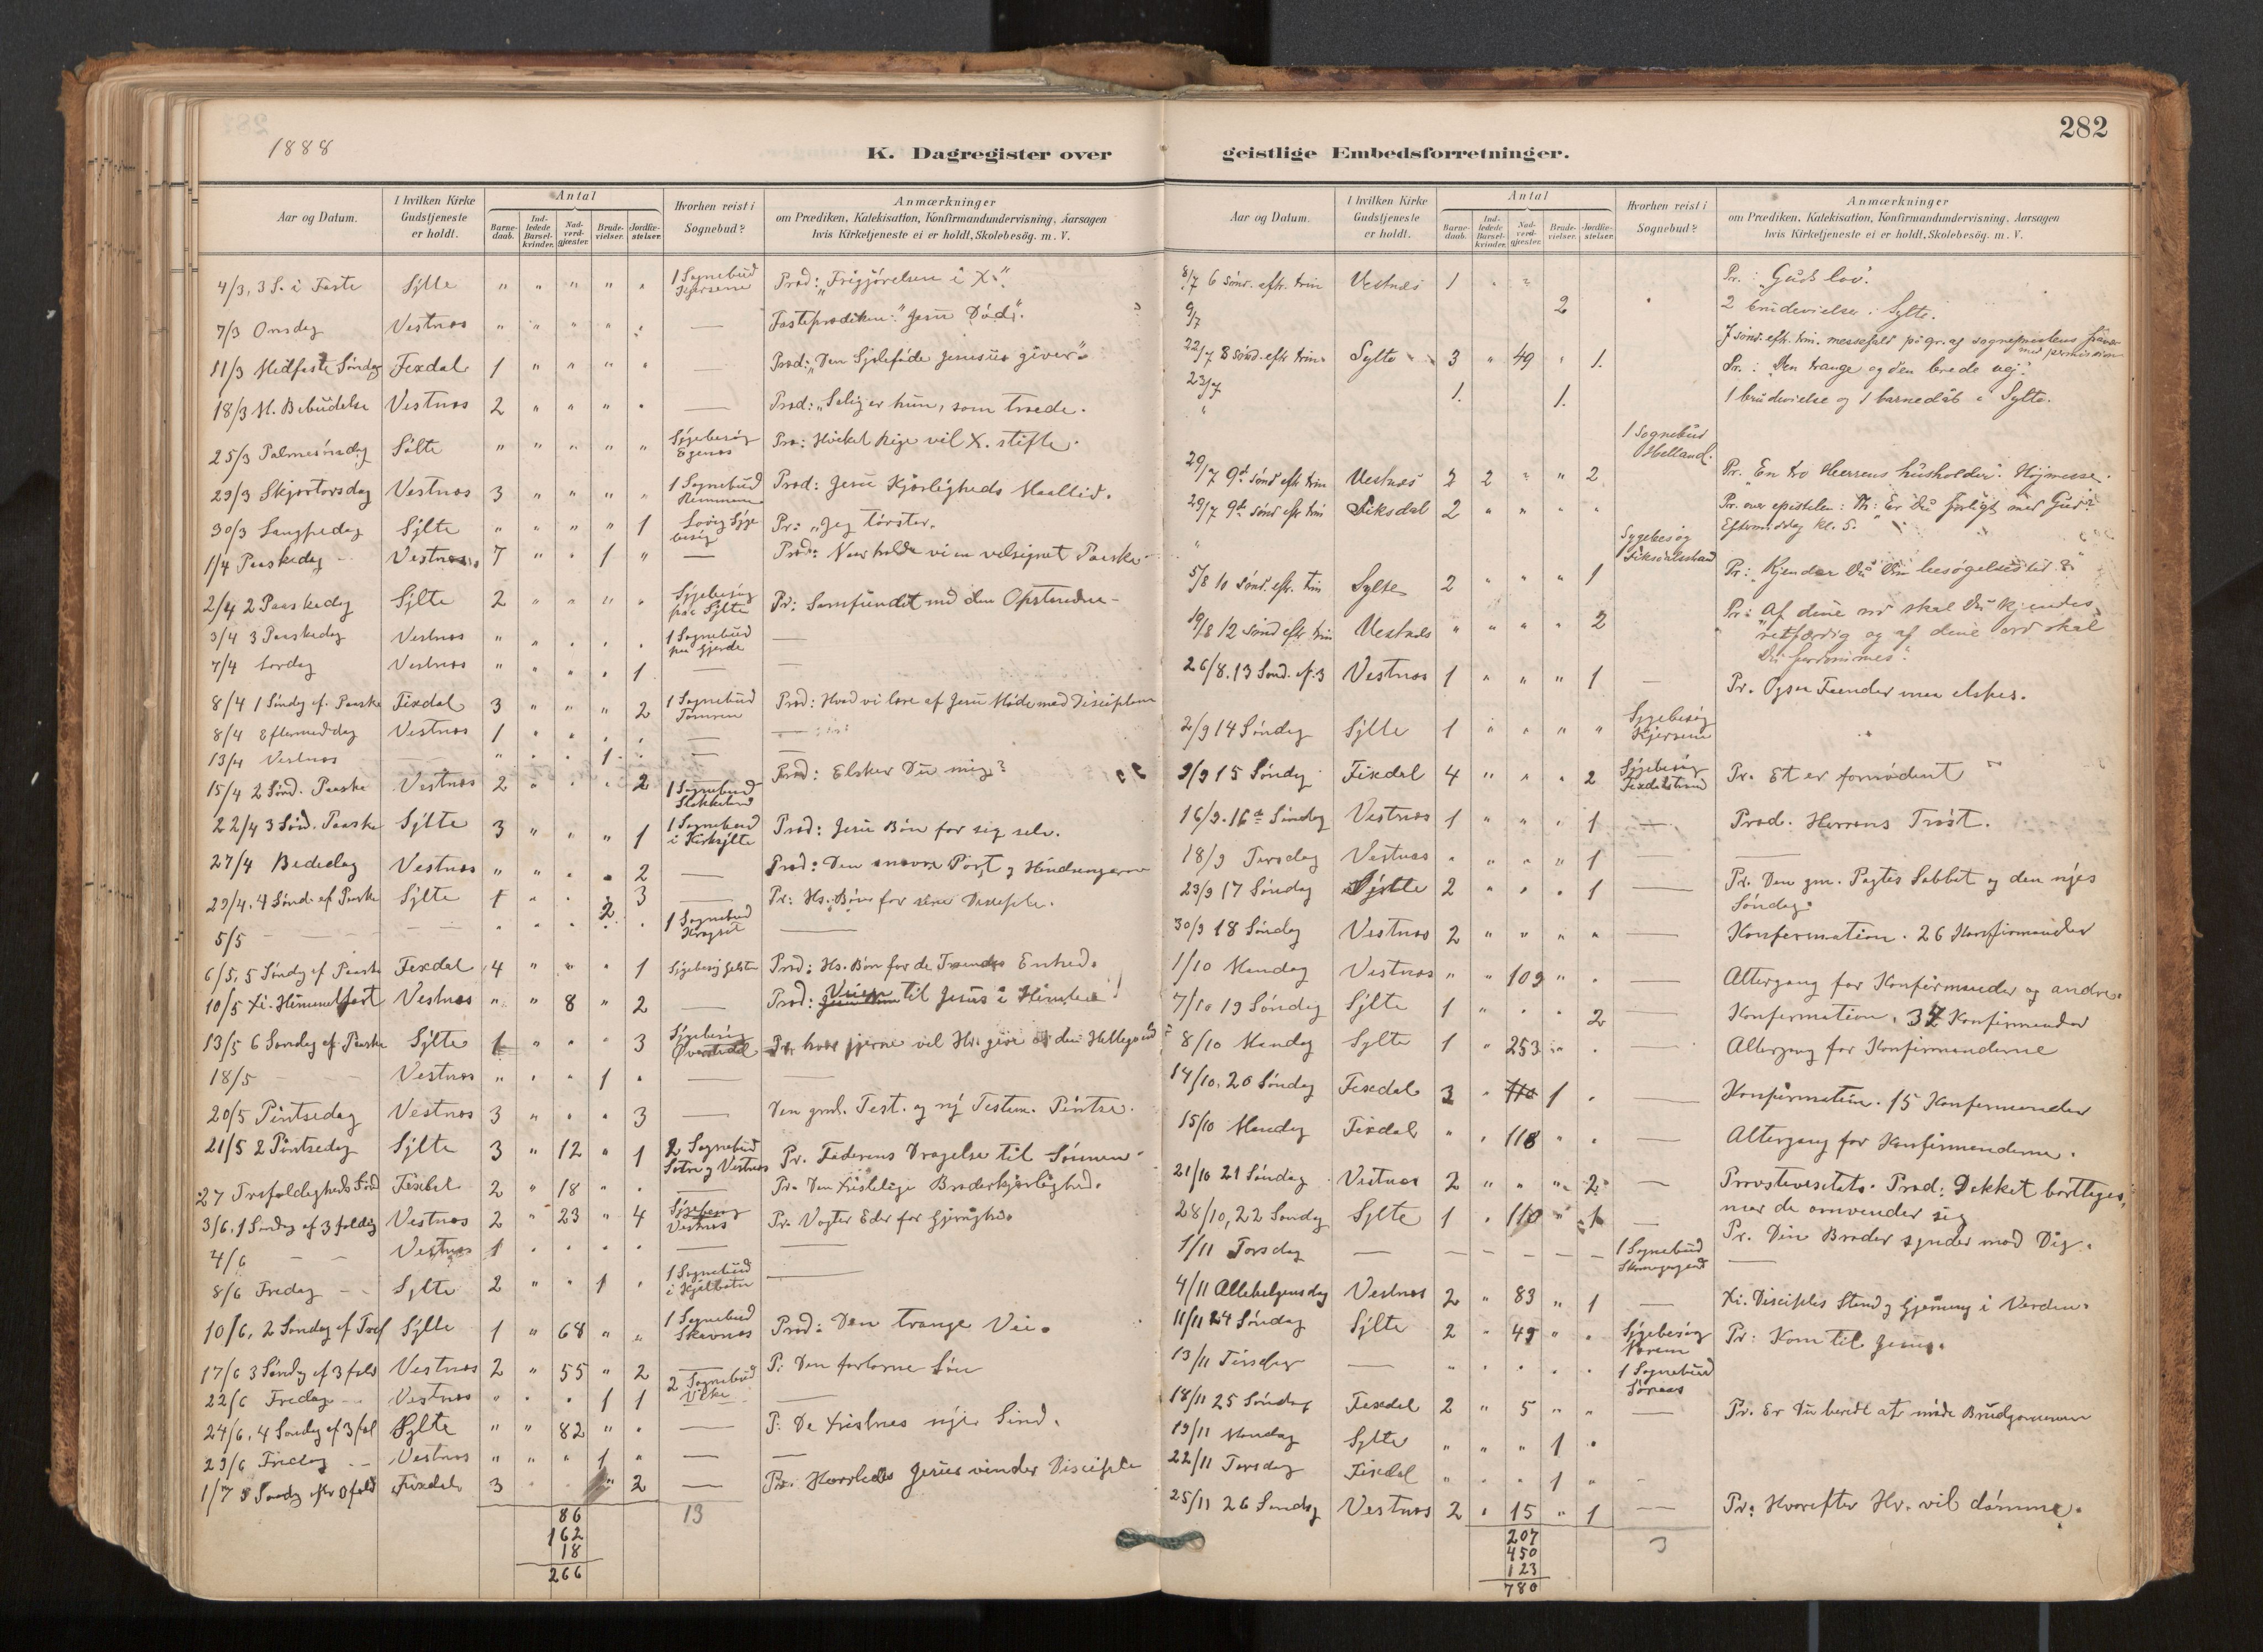 282
1888
K. Dagregister over geistlige Embedsforretninger.
Aar og Datum.
I hvilken Kirke Gudstjeneste er holdt.
Antal
Barnedaab.
Indledede Barselkvinder.
Nadverdgjæster.
Brudevielser.
Jordfæstelser.
Hvorhen reist i Sognebud?
Anmærkninger
om Prædiken, Katekisation, Konfirmandundervisning, Aarsagen
hvis Kirketjeneste ei er holdt, Skolebesøg. m. V.
4/3, 3 S. i Faste Sylte " " " " " 1 Sognebud Kjersem Præd: „Frigjørelsen i X."
7/3 Onsdag Vestnes " " " " " — Fasteprædiken: "Jesu Død".
11/3 Midfaste Søndag Fixdal 1 " " " " — Præd: „Den Sjæleføde Jesus giver"
18/3 M. Bebudelse Vestnes 2 " " " " — Præd: „Salig er hun, som troede.
25/3 Palmesøndag Sylte " " " " " Sygebesøg Egenes Præ: Hvilket Rige vil X. stifte.
29/3 Skjærtorsdag Vestnes 3 " " " " 1 Sognebud Præd: Jesu Kjærligheds Maaltid.
30/3 Langfredag Sylte " " " " 1 Pr: „Jeg tørster.
1/4 Paaskedag Vestnes 7 " " 1 " — Præd: Naar holde vi en velsignet Paaske
2/4 2 Paaskedag Sylte 2 " " " " Sygebesøg paa Sylte Pr: Samfundet med den Opstandne
3/4 3 Paaskedag Vestnes " " " " " 1 Sognebud paa Gjerde —
7/4 Lørdag Vestnes " " " " 1 — —
8/4 1 Søndag ef. Paaske Fixdal 3 " " " 2 1 Sognebud Tomren Præd: Hvad vi lære af Jesu Møde med Disciplene
8/4 Eftermiddag Vestnes 1 " " " " — —
13/4 Vestnes — " " " 1 " — —
15/4 2 Sønd. Paaske Vestnes 2 " " " 2 1 Sognebud Præd: Elsker Du mig?
22/4 3 Sønd. Paaske Sylte 3 " " " 1 1 Sognebud i Kirksylte Præd: Jesu Bøn for sig selv.
27/4 Bededag Vestnes " " " " 2 — Præd: Den snævre Port, og Hindringerne
29/4. 4 Sønd. ef Paaske Sylte 1 " " " 3 — Pr: Hs. Bøn for sine Disciple.
5/5 — — " " " 2 " 1 Sognebud —
6/5, 5 Søndag ef Paaske Fixdal 4 " " " 1 Sygebesøg Præd: Hs. Bøn for de Troendes Enhed.
10/5 Xi. Himmelfart Vestnes " " 8 " 2 — Præd: Veien til Jesus i Himlen!
13/5 6 Søndag ef. Paaske Sylte 1 " " " 3 Sygebesøg Pr. hvor gjerne vil Hr. give os den Helligaand
18/5 Vestnes " " " 1 " — —
20/5 Pintsedag Vestnes 3 " " " 3 — Den gml. Test. og ny Testam. Pintse.
21/5 2 Pintsedag Sylte 3 " 12 " 1 2 Sognebud og Vestnes Pr. Faderens Dragelse til Sønnen
27 Trefoldigheds Sønd Fixdal 2 " 18 " " — Pr. Den kristelige Broderkjærlighed.
3/6. 1 Søndag ef 3foldig Vestnes 2 " 23 " 4 Sygebesøg Vestnes Pr. Vogter Eder for Gjerrighed
4/6 — Vestnes 1 " " " " — —
8/6 Fredag Sylte 2 " " 1 " 1 Sognebud i —
10/6, 2 Søndag ef Tref Sylte 1 " 68 " " 1 Sognebud Skavnes Præd: Den trange Vei.
17/6 3 Søndag ef 3fold Vestnes 2 " 55 " 2 — P: Den fortabne Søn
22/6 Fredag Vestnes " " " 1 1 2 Sognebud Vike —
24/6. 4 Søndag ef 3fol Sylte " " 82 " " — P: De Kristnes nye Sind.
29/6 Fredag Vestnes " " " 1 " — —
1/7 5 Søndag efter 3fold Fixdal 3 " " " 2 — Pr. Hvorledes Jesus vinder Disciple
86 13
162
18
266
Aar og Datum.
I hvilken Kirke Gudstjeneste er holdt.
Antal
Barnedaab.
Indledede Barselkvinder.
Nadverdgjæster.
Brudevielser.
Jordfæstelser.
Hvorhen reist i Sognebud?
Anmærkninger
om Prædiken, Katekisation, Konfirmandundervisning, Aarsagen
hvis Kirketjeneste ei er holdt, Skolebesøg. m. V.
8/7 6 sønd. eft. trin Vestnes 1 " " Pr.: „Guds lov.
9/7 2 " 2 brudevielser i Sylte.
7 sønd. eft. trin. messefald på gr. af sognepræstens fravær med permission
22/7 8 sønd. eft. trin. Sylte 3 " 49 " 1. Pr.: „Den trange og den brede vej."
23/7 1. 1. 1 brudevielse og 1 barnedåb i Sylte.
" 1 Sognebud Helland.
29/7 9d sønd eft trin Vestnes 2 2 " " 2 Pr. „En tro Herrens husholder". Højmesse.
29/7 9de sønd eft trin Fiksdal 2 " " " " Pr. over epistelen: Th: Er du forligt med Gud?
Eftermiddag kl. 5.
" Sygebesøg Fiksdalsstrand
5/8 10 sønd. eft. trin Sylte 2 " " " 1 Pr: „Kjender du din besøgelsestid?"
19/8 12 sønd eft trin Vestnes " " " " 2 Pr: „Af dine ord skal du kjendes
retfærdig og af dine ord skal
du fordømmes."
26/8. 13 Sønd. ef. 3 Vestnes 1 " " " 1 — Pr. Ogsaa Fiender maa elskes.
2/9 14 Søndag Sylte 1 " " " " Sygebesøg Kjersem "
9/9 15 Søndag Fixdal 4 " " " 2 Sygebesøg Fixdalstrand Pr. Et er fornødent
16/9. 16de Søndag Vestnes 1 " " " 1 — Præd. Herrens Trøst.
18/9 Tirsdag Vestnes " " " " 1 —
23/9 17 Søndag Sylte 2 " " " 1 — Pr. Den gm. Pagtes Sabbat og den nyes
Søndag.
30/9 18 Søndag Vestnes 2 " " " " — Konfirmation. 26 Konfirmander
1/10 Mandag Vestnes " " 109 " " — Altergang for Konfirmander og andre.
7/10 19 Søndag Sylte 1 " " " 2 — Konfirmation. 37 Konfirmander
8/10 Mandag Sylte 1 " 253 " " — Altergang for Konfirmanderne
14/10. 20 Søndag Fixdal 3 " 110 1 " — Konfirmation. 15 Konfirmander
15/10 Mandag Fixdal " " 118 " " — Altergang for Konfirmanderne.
21/10 21 Søndag Vestnes 2 " " " 2 — Provstevisitats. Præd: Dækket borttages,
naar de omvender sig
28/10, 22 Søndag Sylte 1 " 110 " 1 — Pr. Din Broder synder mod Dig.
1/11 Torsdag — — — — — — 1 Sognebud —
4/11 Allehelgensdag Vestnes 2 " 83 " 1 — Xi. Disciples Stand og Gjerning i Verden.
11/11 24 Søndag Sylte 2 " 49 " " Sygebesøg Pr: Kom til Jesus.
13/11 Tirsdag — " " " " " 1 Sognebud
18/11 25 Søndag Fixdal 2 " 5 " " — Pr. Er Du beredt at møde Brudgommen
19/11 Mandag Sylte " " " 1 "
22/11 Torsdag Fixdal " " " 1 " -
25/11 26 Søndag Vestnes 2 " 15 " 1 — Pr: Hvorefter Hr. vil dømme.
207 3
450
123
780